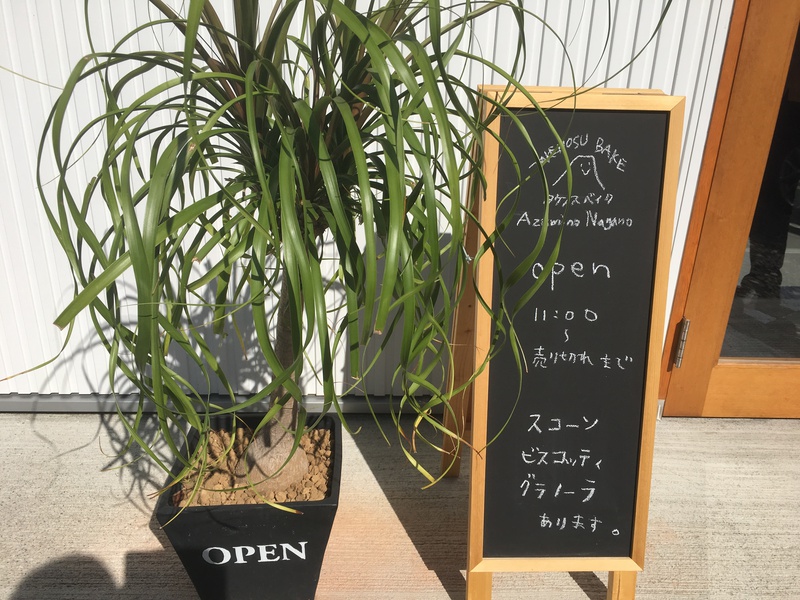 BAKE
タケノスベイク
Azumino Nagano
open
11:00
～
売り切れまで
スコーン
ビスコッティ
グラノーラ
あります。
OPEN